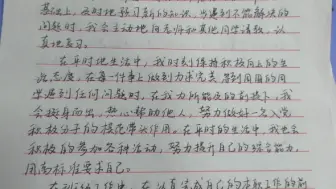 基础上，及时地预习新的知识，当遇到不能解决的
问题时，我会主动地向老师和其他同学请教，认
真地学习。
在平时地生活中，我时刻保持积极向上的生
活态度，在每一件事上做到力求完美，当周围的同
学遇到任何问题时，在我力所能及的前提下，我
会挺身而出，热心帮助他人，努力做好一名入党
积极分子的模范带头作用。在平时的生活中，我也会
积极的参加各种活动，努力提升自己的综合能力，
用高标准要求自己。
工作中，在认真完成自己的本职工作的前